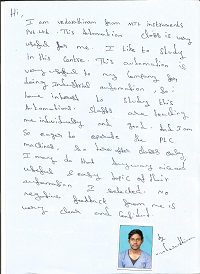 Hi,
I am vedanthiram from MTI instruments
Pvt Ltd. This Automation class is very
useful for me. I like to study
in this centre. This automation is
very useful to my company for
doing Industrial automation. So i
have interest to study this
Automations. Staffs are teaching
me individually and good. And I am
so eager to operate the PLC
machines. So here after classes only
I may do that. Anyway nice and
useful & easy topic of their
automation I selected. No
negative feedback from me is
very clear and confident.
by